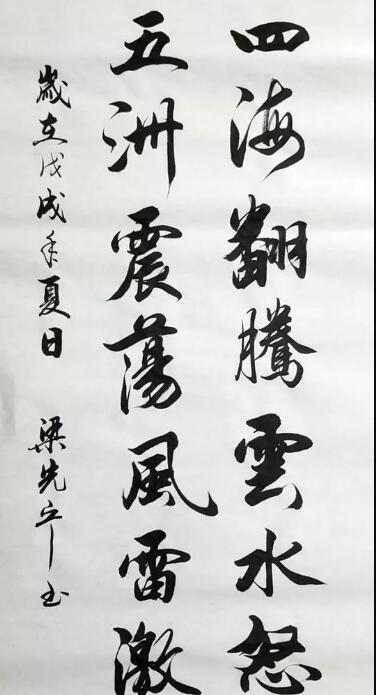 四海翻騰雲水怒
五洲震蕩風雷激
歲在戊戌年夏日 梁先平书